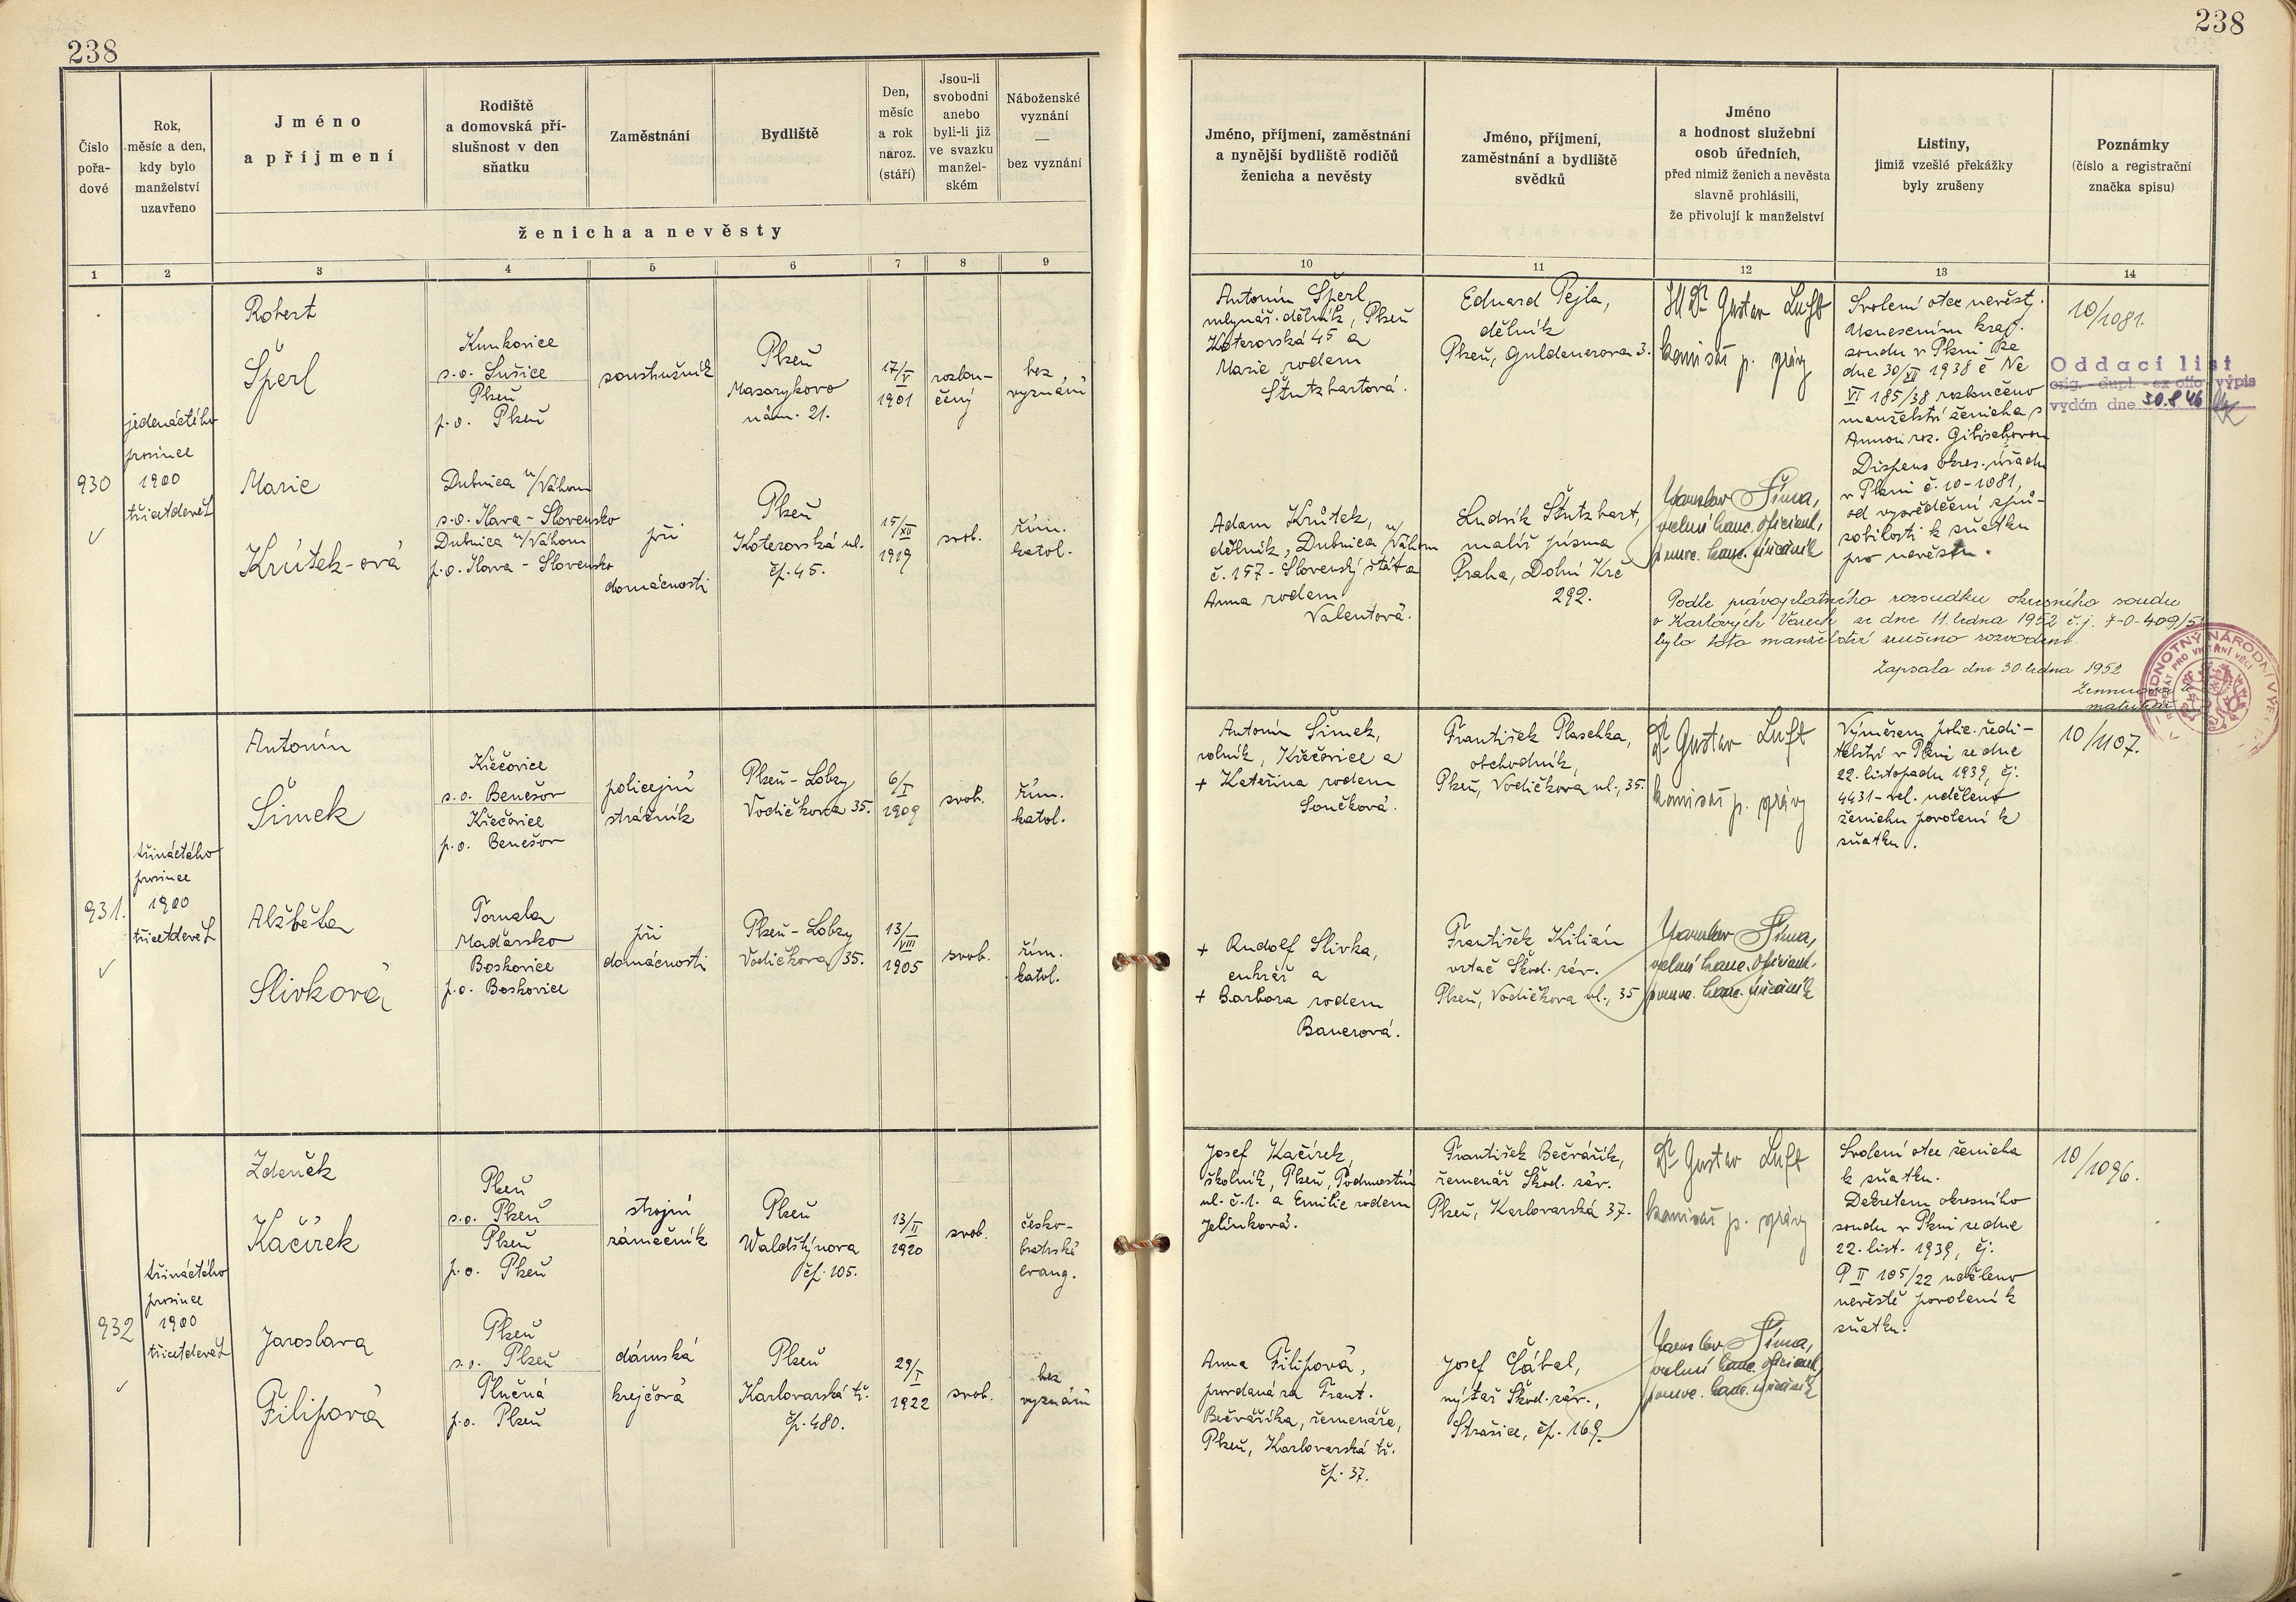 238
238
Číslo
pořa-
dové
Rok,
měsíc a den,
kdy bylo
manželství
uzavřeno
Jméno
a příjmení
Rodiště
a domovská pří-
slušnost v den
sňatku
Zaměstnání
Bydliště
Den,
měsíc
a rok
naroz.
(stáří)
Jsou-li
svobodni
anebo
byli-li již
ve svazku
manžel-
ském
Náboženské
vyznání
—
bez vyznání
ženicha a nevěsty
Jméno, příjmení, zaměstnání
a nynější bydliště rodičů
ženicha a nevěsty
Jméno, příjmení,
zaměstnání a bydliště
svědků
Jméno
a hodnost služební
osob úředních,
před nimiž ženich a nevěsta
slavně prohlásili,
že přivolují k manželství
Listiny,
jimiž vzešlé překážky
byly zrušeny
Poznámky
(číslo a registrační
značka spisu)
1 2 3 4 5 6 7 8 9
10 11 12 13 14
930
jedenáctého
prosince
1900
třicetdevět
Robert
Šperl
Kunkovice
s.o. Sušice
Plzeň
p.o. Plzeň
soustružník
Plzeň
Masarykovo
nám. 21.
17/V
1901
rozlou-
čený
bez
vyznání
Marie
Krůtek-ová
Dubnica n/Váhom
s.o. Ilava - Slovensko
Dubnica n/Váhom
p.o. Ilava - Slovensko
při
domácnosti
Plzeň
Koterovská ul.
čp. 45.
15/XII
1919
svob.
řím.
katol.
Antonín Šperl,
mlynář. dělník, Plzeň
Koterovská 45 a
Marie rodem
Štutzbartová.
Adam Krůtek,
dělník, Dubnica n/Váhom
č. 157 - Slovenský štát a
Anna rodem
Valentová.
Eduard Pejla,
dělník
Plzeň, Guldenerova 3.
Ludvík Štutzbart,
malíř písma
Praha, Dolní Krč
292.
Dr Gustav Luft
komisař p. správy
Jaroslav Šíma,
vrchní kanc. oficiant,
pomoc. kanc. úředník
Svolení otce nevěsty.
Usnesením kraj.
soudu v Plzni ze
dne 30/XII 1938 č Nc
VI 185/38 rozloučeno
manželství ženicha s
Annou roz. Gibischovou
Dispens okres. úřadu
v Plzni č. 10-1081,
od vysvědčení způ-
sobilosti k sňatku
pro nevěstu.
10/1081.
Oddací list
orig. dupl. ex offo výpis
vydán dne 30.8 46
Podle právoplatného rozsudku okresního soudu
v Karlových Varech ze dne 11. ledna 1952 č.j. 7-0-409/51
bylo toto manželství zrušeno rozvodem.
Zapsala dne 30. ledna 1952
JEDNOTNÝ NÁRODNÍ VÝBOR
REFERÁT PRO VNITŘNÍ VĚCI
931.
třináctého
prosince
1900
třicetdevět
Antonín
Šimek
Křečovice
s.o. Benešov
Křečovice
p.o. Benešov
policejní
strážník
Plzeň - Lobzy
Vodičkova 35.
6/I
1909
svob.
řím.
katol.
Alžběta
Slivková
Tornala
Maďarsko
Boskovice
p.o. Boskovice
při
domácnosti
Plzeň - Lobzy
Vodičkova 35.
13/VIII
1905
svob.
řím.
katol.
Antonín Šimek,
rolník, Křečovice a
+ Kateřina rodem
Součková.
+ Rudolf Slivka,
cukrář a
+ Barbora rodem
Bauerová.
František Plaschka,
obchodník,
Plzeň, Vodičkova ul., 35.
František Kilián
vrtač Škod. záv.
Plzeň, Vodičkova ul., 35
Dr Gustav Luft
komisař p. správy
Jaroslav Šíma,
vrchní kanc. oficiant,
pomoc. kanc. úředník
Výměrem polic. ředi-
telství v Plzni ze dne
22. listopadu 1939, čj.
4431-vel. uděleno
ženichu povolení k
sňatku.
10/1107.
932
třináctého
prosince
1900
třicetdevět
Zdeněk
Kačírek
Plzeň
s.o. Plzeň
Plzeň
p.o. Plzeň
strojní
zámečník
Plzeň
Waldštýnova
čp. 105.
13/II
1920
svob.
česko-
bratrské
evang.
Jaroslava
Filipová
Plzeň
s.o. Plzeň
Plučná
p.o. Plzeň
dámská
krejčová
Plzeň
Karlovarská tř.
čp. 480.
29/I
1922
svob.
bez
vyznání
Josef Kačírek,
školník, Plzeň, Podmostní
ul. č. 1. a Emilie rodem
Jelínková.
Anna Filipová,
provdaná za Frant.
Bečváříka, řemenáře,
Plzeň, Karlovarská tř.
čp. 37.
František Bečvářík,
řemenář Škod. záv.
Plzeň, Karlovarská 37.
Josef Cábal,
nýtař Škod. záv.,
Strašice, čp. 169.
Dr Gustav Luft
komisař p. správy
Jaroslav Šíma,
vrchní kanc. oficiant,
pomoc. kanc. úředník
Svolení otce ženicha
k sňatku.
Dekretem okresního
soudu v Plzni ze dne
22. list. 1939, čj.
P II 105/22 uděleno
nevěstě povolení k
sňatku.
10/1096.